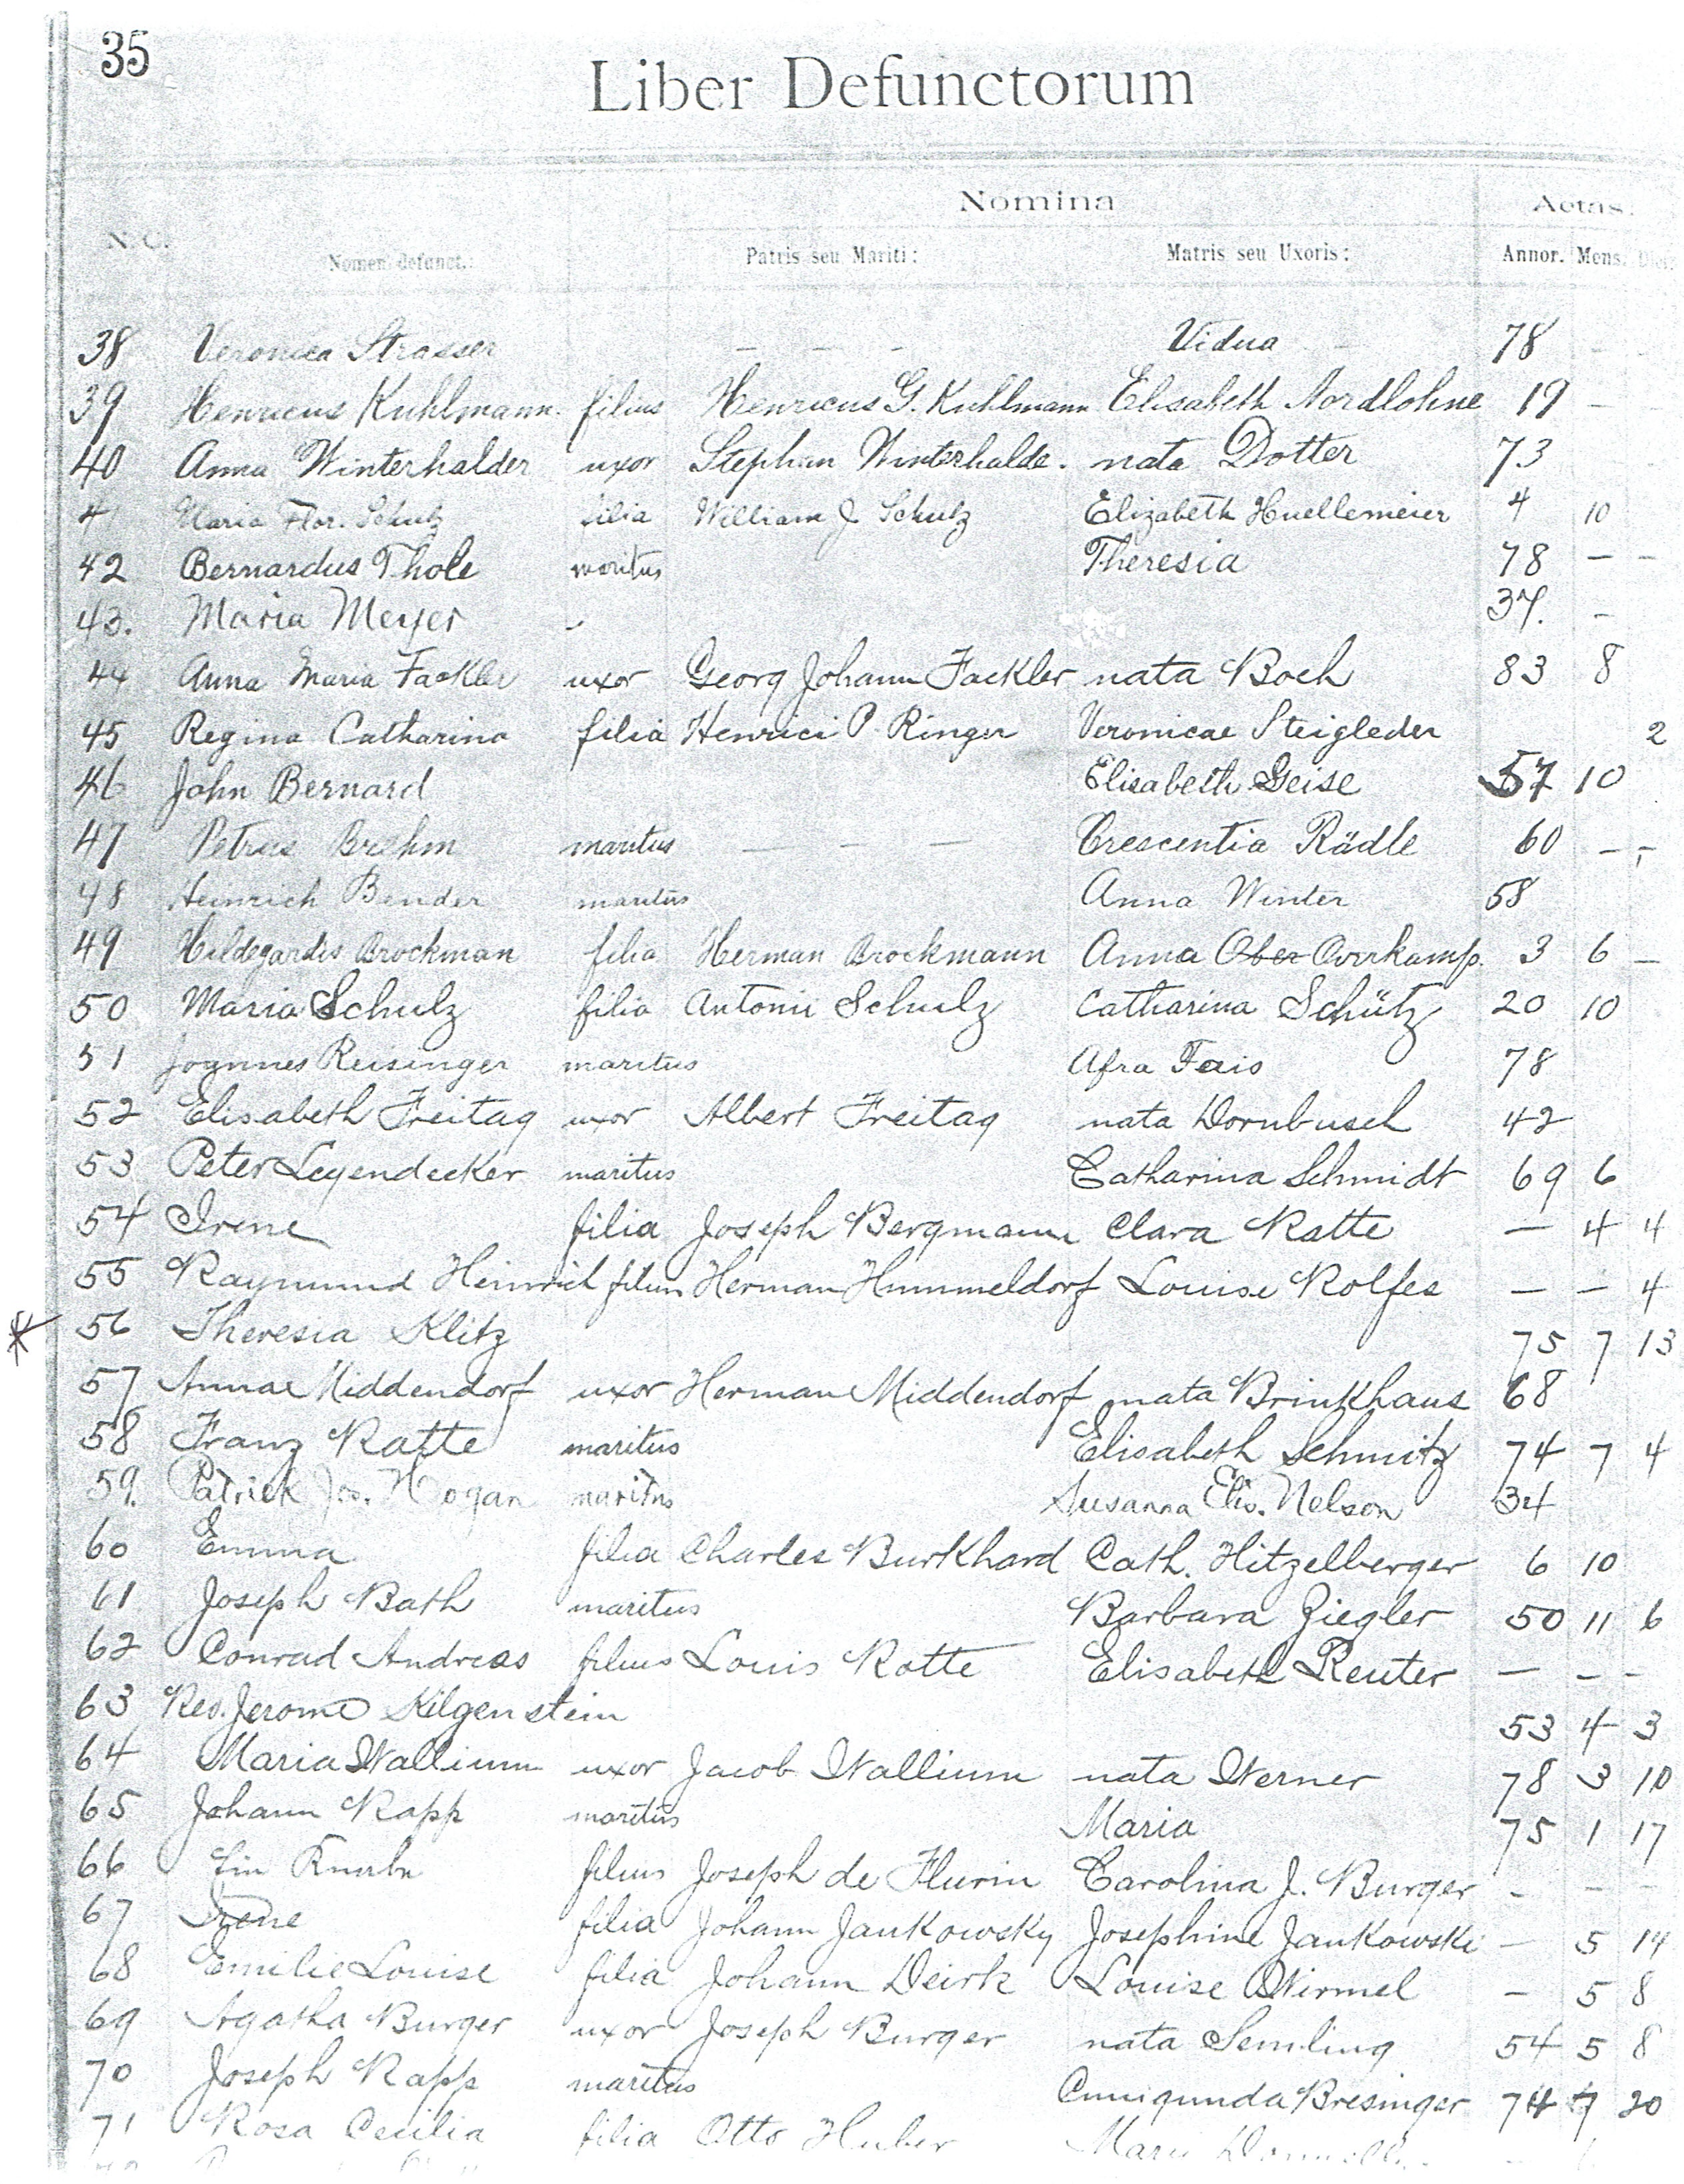 35
Liber Defunctorum
Nomina
Aetas.
N. C. Nomen defunct.: Patris seu Mariti: Matris seu Uxoris: Annor. Mens. Dier.
38 Veronica Strasser - - - Vidua 78 -
39 Henricus Kuhlmann filius Henricus G. Kuhlmann Elisabeth Nordlohne 19 -
40 Anna Winterhalder uxor Stephan Winterhalde. nata Dotter 73
41 Maria Flor. Schulz filia William J Schulz Elizabeth Huellemeier 4 10
42 Bernardus Thole maritus Theresia 78 - -
43. Maria Meyer - 37. -
44 Anna Maria Fackler uxor Georg Johann Fackler nata Boch 83 8
45 Regina Catharina filia Henrici P. Ringer Veronicae Steigleder 2
46 John Bernard Elisabeth Geise 57 10
47 Petrus Brehm maritus - - - Crescentia Rädle 60 - -
48 Heinrich Bender maritus Anna Winter 58
49 Hildegardis Brockman filia Herman Brockmann Anna Ober Overkamp. 3 6 -
50 Maria Schulz filia Antonii Schulz Catharina Schütz 20 10
51 Joannes Reisinger maritus Afra Fais 78
52 Elisabeth Freitag uxor Albert Freitag nata Dornbusch 42
53 Peter Leyendecker maritus Catharina Schmidt 69 6
54 Irene filia Joseph Bergmann Clara Ratte - 4 4
55 Raymund Heinrich filius Herman Hummeldorf Louise Rolfes - - 4
* 56 Theresia Klitz 75 7 13
57 Annae Middendorf uxor Herman Middendorf nata Brinkhaus 68
58 Franz Ratte maritus Elisabeth Schmitz 74 7 4
59. Patrick Jos. Hogan maritus Susanna Elis. Nelson 34
60 Emma filia Charles Burkhard Cath. Hitzelberger 6 10
61 Joseph Bath maritus Barbara Ziegler 50 11 6
62 Conrad Andreas filius Louis Rotte Elisabeth Reuter - - -
63 Rev. Jerome Kilgenstein 53 4 3
64 Maria Wallium uxor Jacob Wallium nata Werner 78 3 10
65 Johann Rapp maritus Maria 75 1 17
66 Ein Knabe filius Joseph de Flurin Carolina J. Burger - - -
67 Irene filia Johann Jankowsky Josephine Jankowski - 5 14
68 Emilie Louise filia Johann Deirk Louise Wirmel - 5 8
69 Agatha Burger uxor Joseph Burger nata Semling 54 5 8
70 Joseph Rapp maritus Cunigunda Bresinger 74 7 20
71 Rosa Cecilia filia Otto Huber Marie